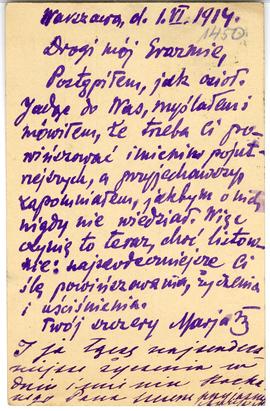 Warszawa, d. 1.VI. 1914.
1450
Drogi mój Erazmie,
Postąpiłem, jak osioł.
Jadąc do Was, myślałem i
mówiłem, że trzeba Ci po-
winszować imienin pojut-
rzejszych, a przyjechawszy
zapomniałem, jakbym o nich
nigdy nie wiedział. Więc
czynię to teraz, choć listow-
nie: najserdeczniejsze Ci
ślę powinszowania, życzenia
i uściśnienia.
Twój szczery Marjan
I ja łączę najserdecz-
niejsze życzenia w
dniu imienin Kocha-
nego Pana